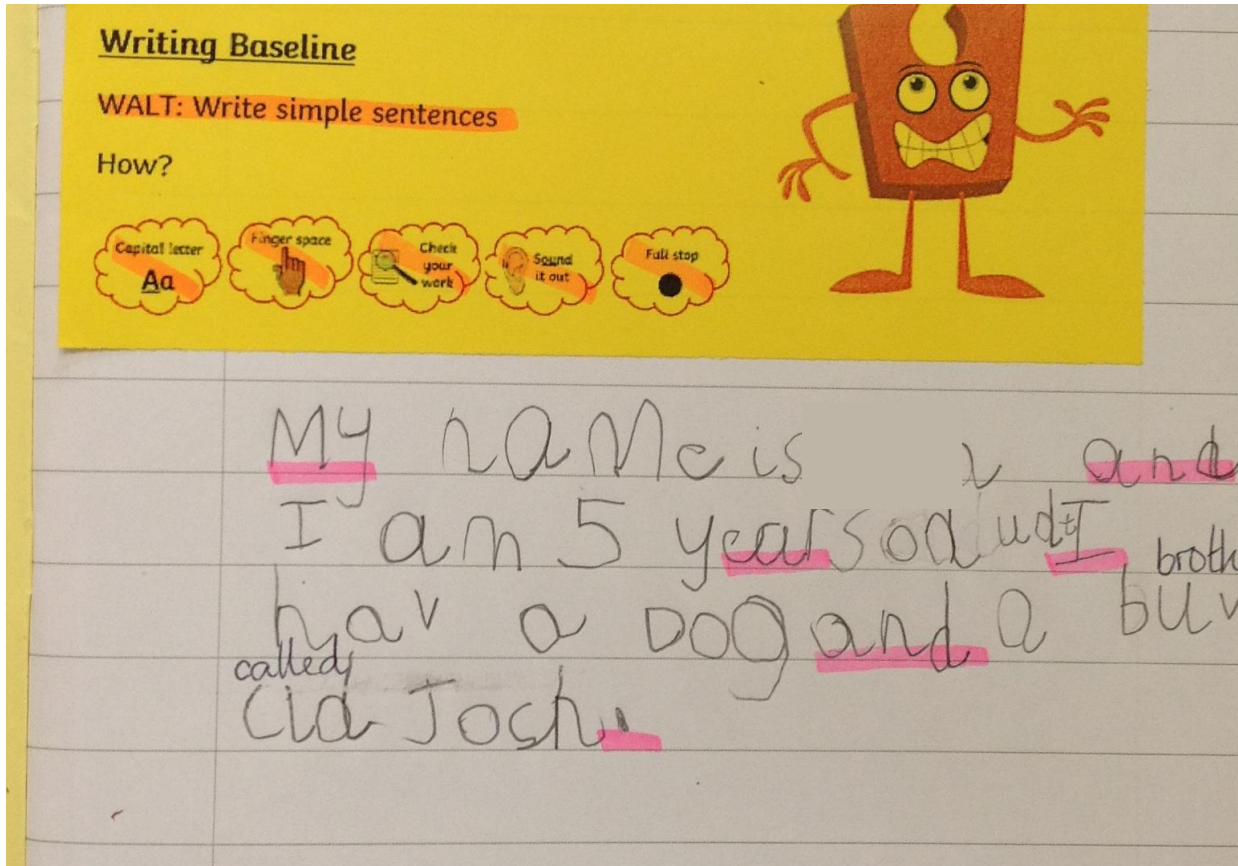 Writing Baseline
WALT: Write simple sentences
How?
Capital letter
Aa
Finger space
Check
your
work
Sound
it out
Full stop
My name is and
I am 5 years od I
broth
hav a Dog and a buv
called
Cld Josh.